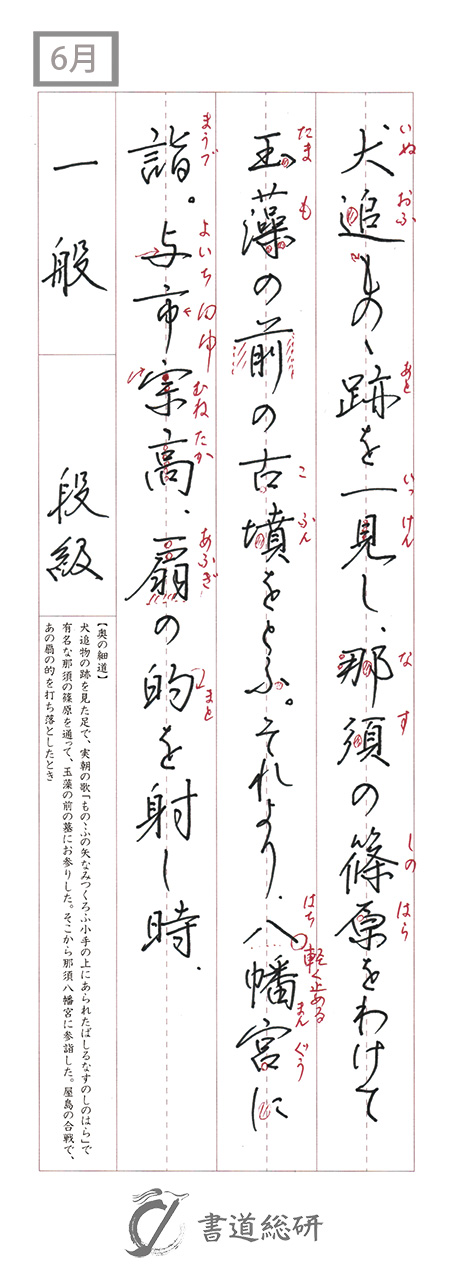 6月
犬追ものゝ跡を一見し、那須の篠原をわけて
いぬ おふ あと いっけん なす しの はら
玉藻の前の古墳をとふ。それより、八幡宮に
たま も こ ふん はち まん ぐう
軽く止める
詣。与市宗高、扇の的を射し時、
まうづ よいち むね たか あふぎ まと
一般 段級
【奥の細道】
犬追物の跡を見た足で、実朝の歌「ものゝふの矢なみつくろふ小手の上にあられたばしるなすのしのはら」で
有名な那須の篠原を通って、玉藻の前の墓にお参りした。そこから那須八幡宮に参詣した。屋島の合戦で、
あの扇の的を打ち落としたとき
書道総研